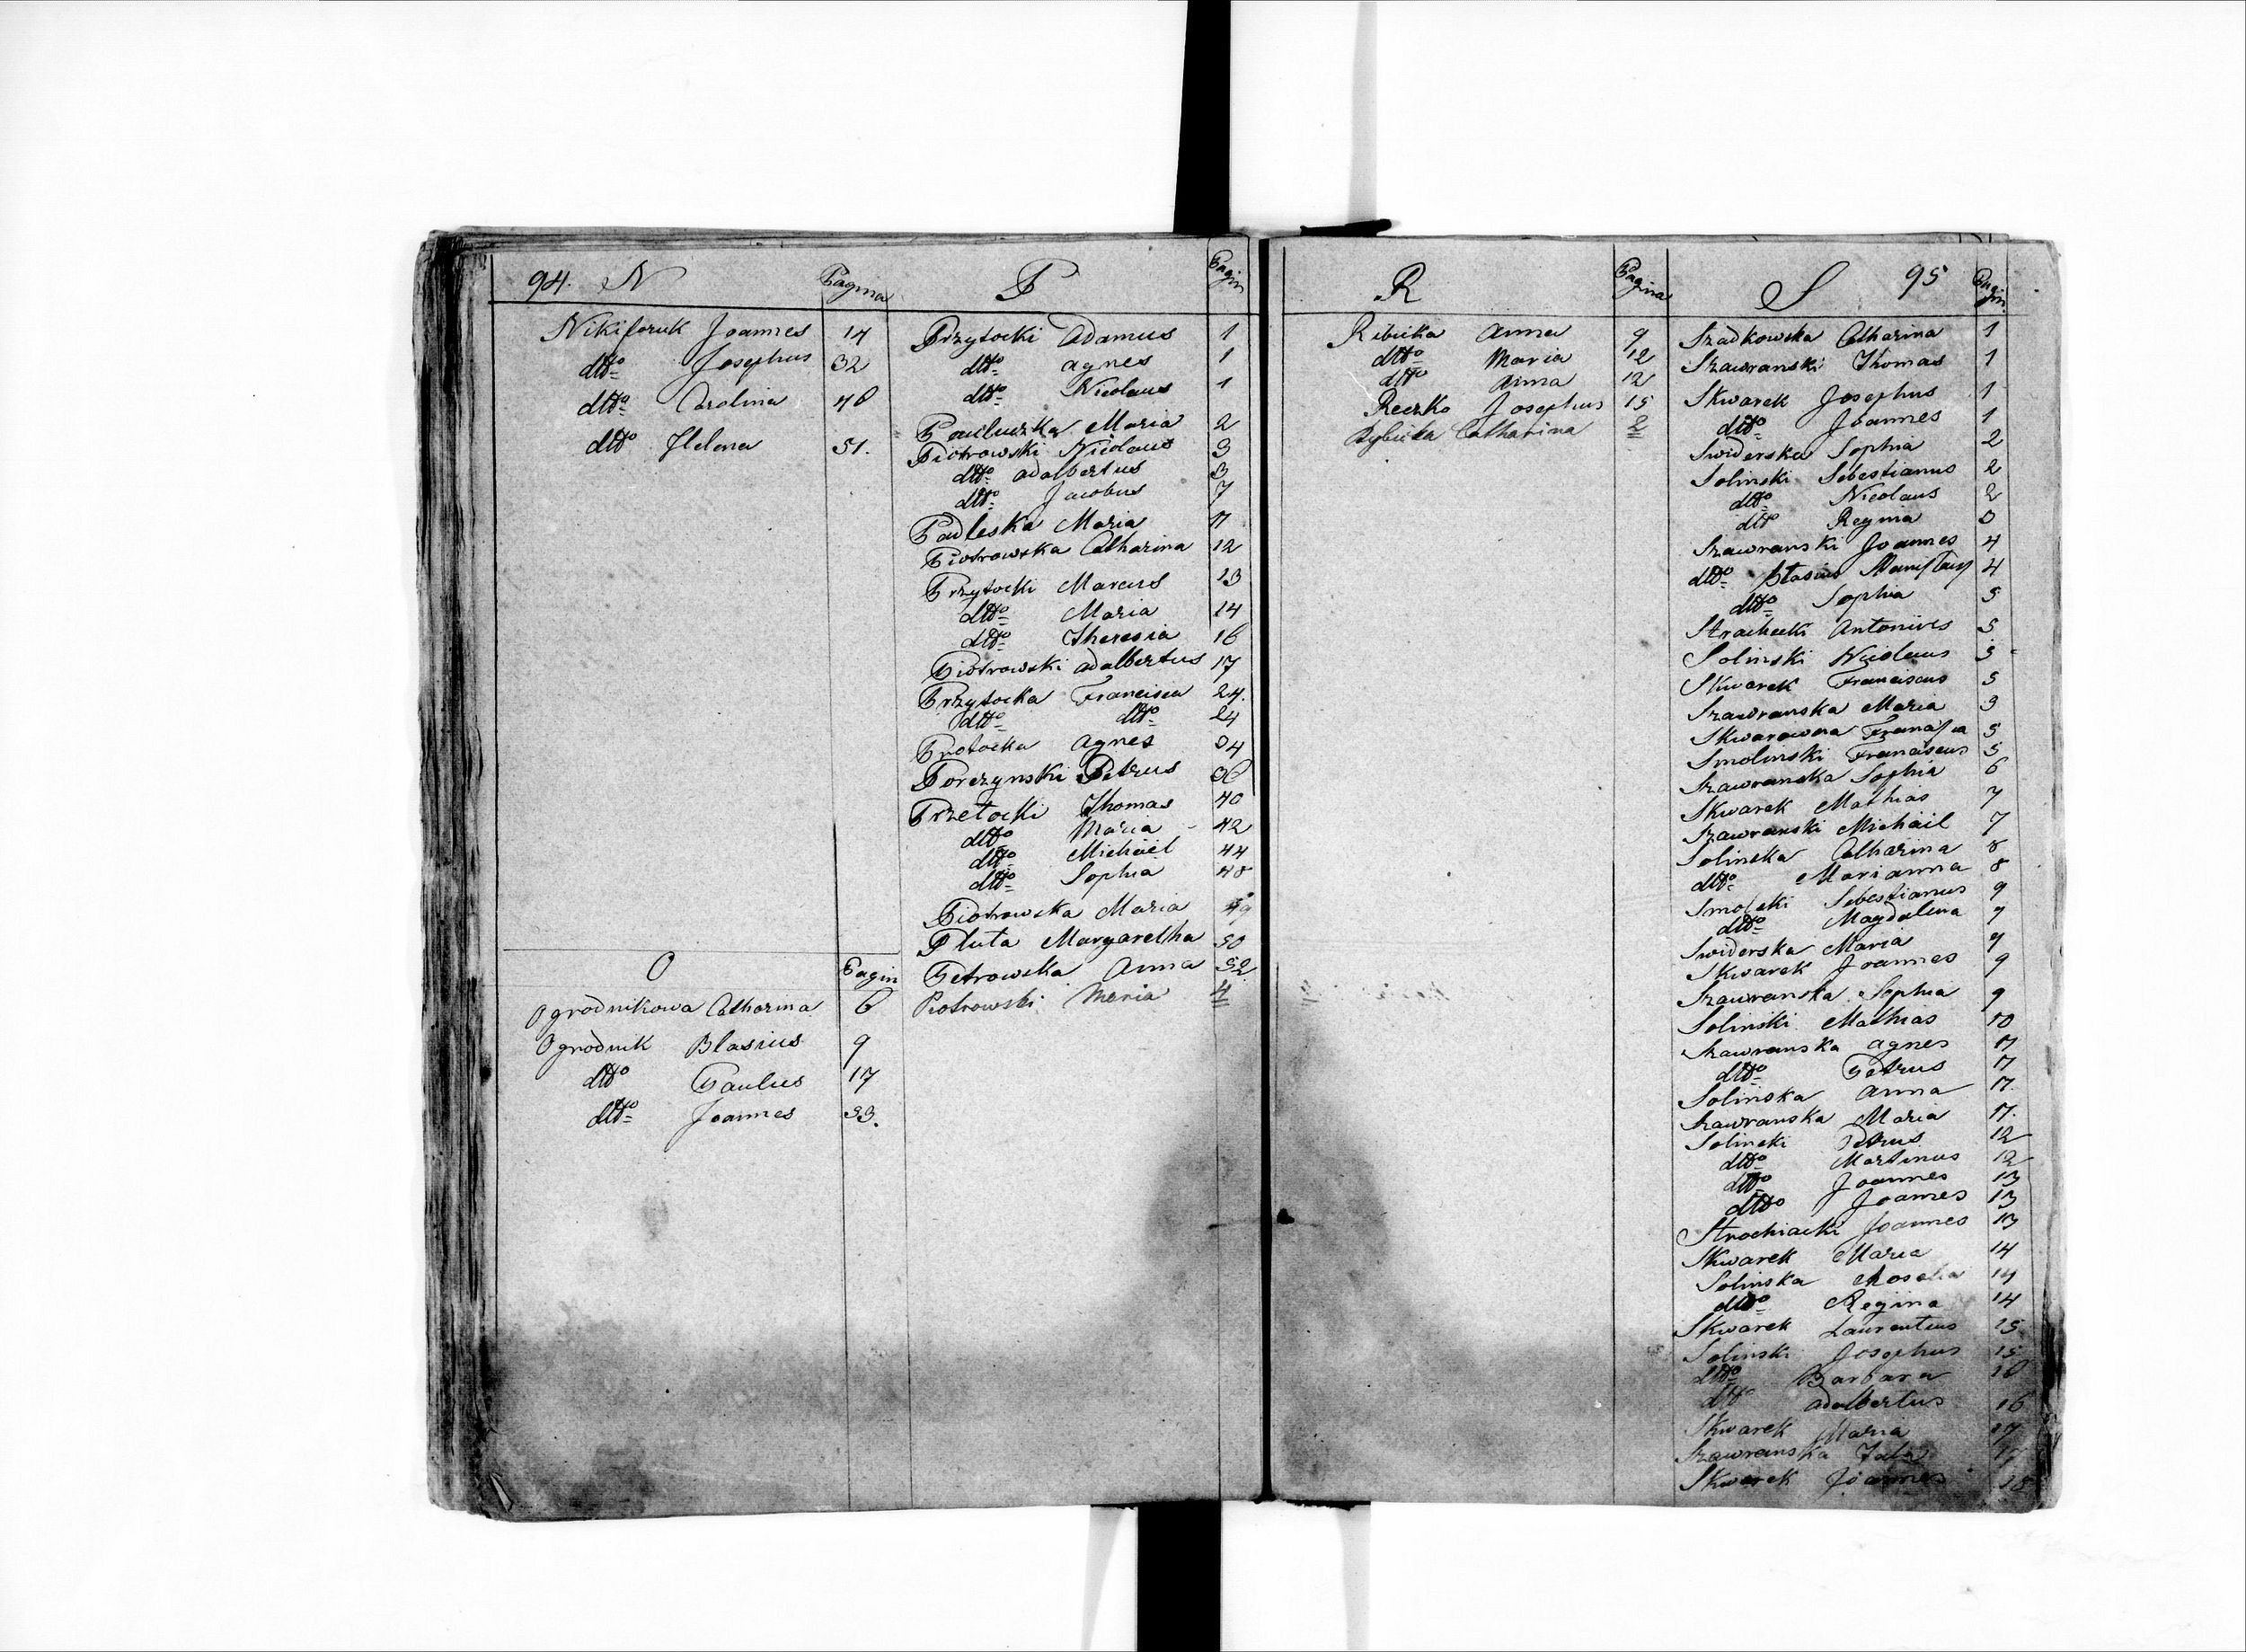 94. N Pagina
Nikiforuk Joannes 14
dtto Josephus 32
dtto Carolina 46
dtto Helena 51.
O Pagin
Ogrodnikowa Catharina 6
Ogrodnik Blasius 9
dtto Paulus 17
dtto Joannes 33.
P Pagin
Przytocki Adamus 1
dtto Agnes 1
dtto Nicolaus 1
Pawluczka Maria 2
Piotrowski Nicolaus 3
dtto Adalbertus 3
dtto Jacobus 7
Padleska Maria 11
Piotrowska Catharina 12
Przytocki Marcus 13
dtto Maria 14
dtto Theresia 16
Piotrowski Adalbertus 17
Przytocka Francisca 24.
dtto dtto 24
Protocka Agnes 34
Porczynski Petrus 36
Przetocki Thomas 40
dtto Maria 42
dtto Michäel 44
dtto Sophia 48
Piotrowska Maria 49
Pluta Margaretha 50
Petrowska Anna 52
Piotrowski Maria 4
R Pagina
Ribicka Anna 9
dtto Maria 12
dtto Anna 12
Reczko Josephus 15
Rybicka Catharina 2
S 95 Pagin
Szadkowska Catharina 1
Szawranski Thomas 1
Skwarek Josephus 1
dtto Joannes 1
Swiderska Sophia 2
Solinski Sebestianus 2
dtto Nicolaus 2
dtto Regina 3
Szawranski Joannes 4
dtto Blasius 4
dtto Sophia 5
Strachecki Antonius 5
Solinski Nicolaus 5
Skwarek Franciscus 5
Szawranska Maria 5
Skwarkowna 5
Smolinski Franciscus 5
Szawranska Sophia 6
Skwarek Mathias 7
Szawranski Michäil 7
Solinska Catharina 8
dtto Marianna 8
Smolski Sebestianus 9
dtto Magdalena 9
Swiderska Maria 9
Skwarek Joannes 9
Szawranska Sophia 9
Solinski Mathias 10
Szawranska Agnes 11
dtto Petrus 11
Solinska Anna 11.
Szawranska Maria 11.
Solinski Petrus 12
dtto Martinus 12
dtto Joannes 13
dtto Joannes 13
Strochiacki Joannes 13
Skwarek Maria 14
Solinska Rosalia 14
dtto Regina 14
Skwarek Laurentius 15
Solinski Josephus 15
dtto Barbara 16
dtto Adalbertus 16
Skwarek Maria 17
Szawranska 17
Skwarek Joannes 18